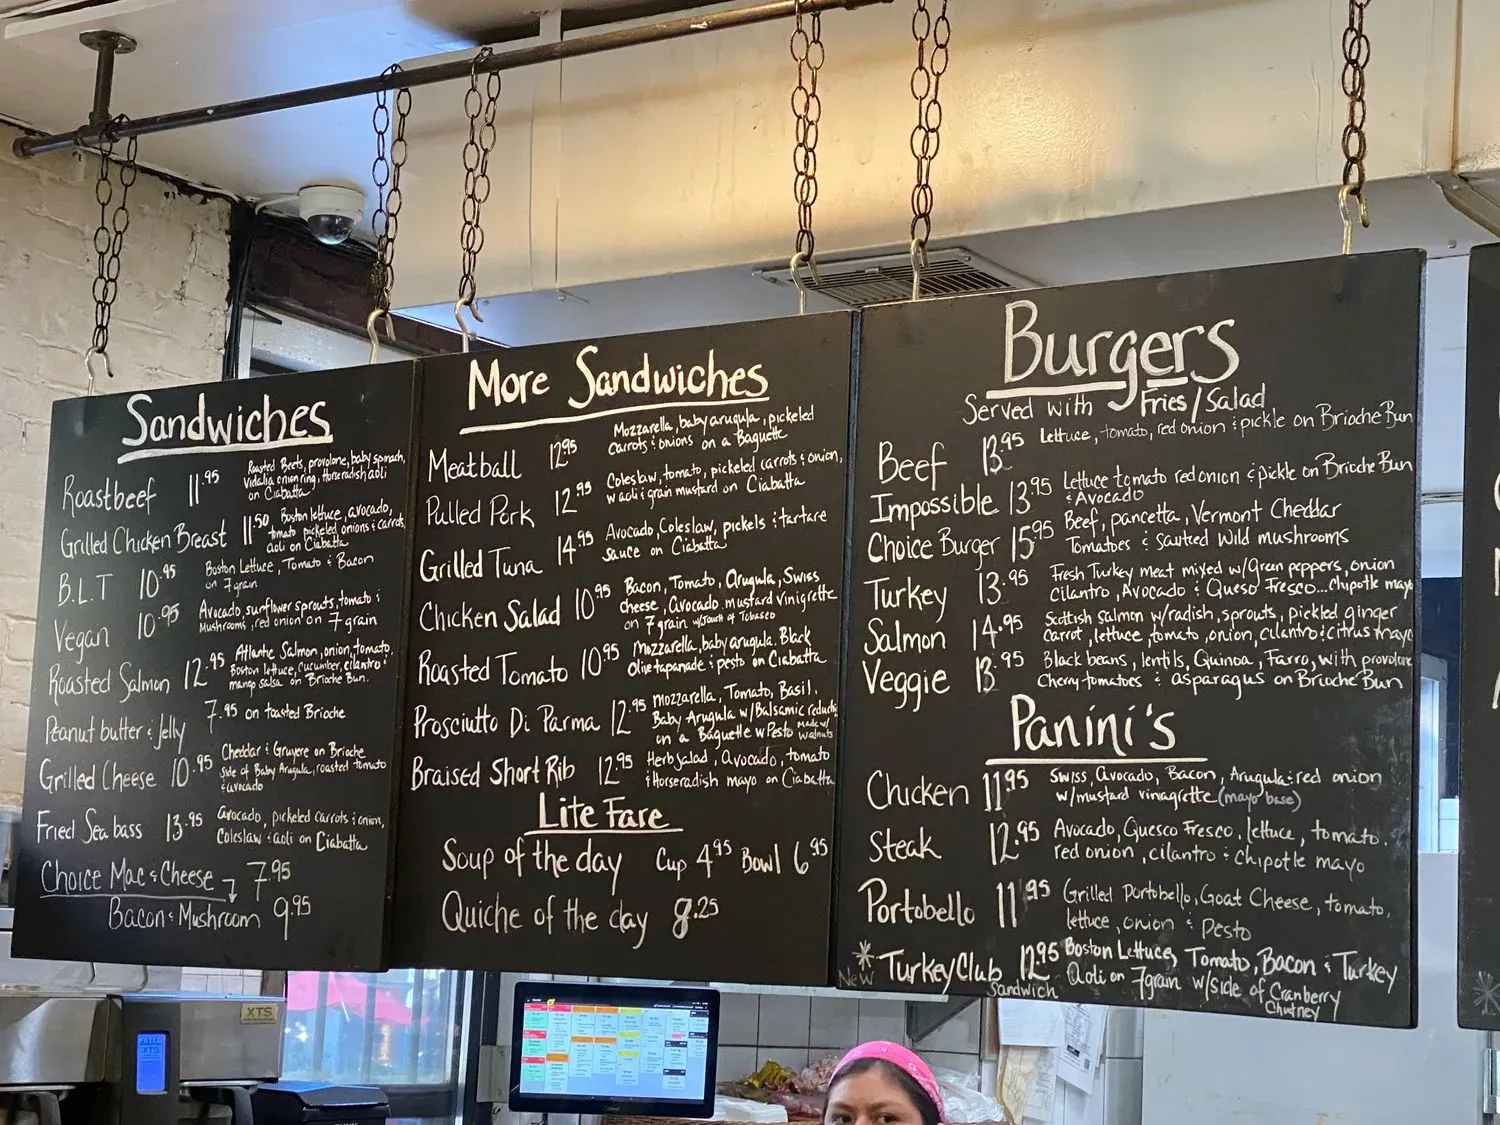 Sandwiches
Roastbeef 11.95 Roasted Beets, provolone, baby spinach,
Vidalia onion ring, Horseradish aoli
on Ciabatta
Grilled Chicken Breast 11.50 Boston lettuce, avocado,
tomato pickeled onions & carrots,
aoli on Ciabatta
B.L.T 10.95 Boston Lettuce, Tomato & Bacon
on 7 grain
Vegan 10.95 Avocado, sunflower sprouts, tomato &
Mushrooms, red onion on 7 grain
Roasted Salmon 12.95 Atlantic Salmon, onion, tomato,
Boston lettuce, cucumber, cilantro &
mango salsa on Brioche Bun.
Peanut butter & Jelly 7.95 on toasted Brioche
Grilled Cheese 10.95 Cheddar & Gruyere on Brioche
side of Baby Arugula, roasted tomato
& avocado
Fried Sea bass 13.95 Avocado, pickeled carrots & onion,
Coleslaw & aoli on Ciabatta
Choice Mac & Cheese 7.95
Bacon & Mushroom 9.95
More Sandwiches
Meatball 12.95 Mozzarella, baby arugula, pickeled
carrots & onions on a Baguette
Pulled Pork 12.95 Coleslaw, tomato, pickeled carrots & onion,
w aoli & grain mustard on Ciabatta
Grilled Tuna 14.95 Avocado, Coleslaw, pickels & tartare
sauce on Ciabatta
Chicken Salad 10.95 Bacon, Tomato, Arugula, Swiss
cheese, avocado mustard vinigrette
on 7 grain w/touch of Tobasco
Roasted Tomato 10.95 Mozzarella, baby arugula, Black
Olive tapanade & pesto on Ciabatta
Prosciutto Di Parma 12.95 Mozzarella, Tomato, Basil,
Baby Arugula w/Balsamic
on a Baguette w Pesto made w/ walnuts
Braised Short Rib 12.95 Herb salad, Avocado, tomato
& Horseradish mayo on Ciabatta
Lite Fare
Soup of the day Cup 4.95 Bowl 6.95
Quiche of the day 8.25
Burgers
Served with Fries/Salad
Beef 13.95 Lettuce, tomato, red onion & pickle on Brioche Bun
Impossible 13.95 Lettuce tomato red onion & pickle on Brioche Bun
& Avocado
Choice Burger 15.95 Beef, pancetta, Vermont Cheddar
Tomatoes & sauteed wild mushrooms
Turkey 13.95 Fresh Turkey meat mixed w/green peppers, onion
cilantro, Avocado & Queso Fresco...chipotle mayo
Salmon 14.95 Scottish salmon w/radish, sprouts, pickled ginger
carrot, lettuce, tomato, onion, cilantro & citrus mayo
Veggie 13.95 Black beans, lentils, Quinoa, Farro, with provolone
Cherry tomatoes & asparagus on Brioche Bun
Panini's
Chicken 11.95 Swiss, Avocado, Bacon, Arugula & red onion
w/mustard viniagrette (mayo base)
Steak 12.95 Avocado, Quesco Fresco, lettuce, tomato,
red onion, cilantro & chipotle mayo
Portobello 11.95 Grilled Portobello, Goat Cheese, tomato,
lettuce, onion & Pesto
New Turkey Club Sandwich 12.95 Boston Lettuce, Tomato, Bacon & Turkey
Aoli on 7grain w/side of Cranberry
Chutney
XTS
XTS